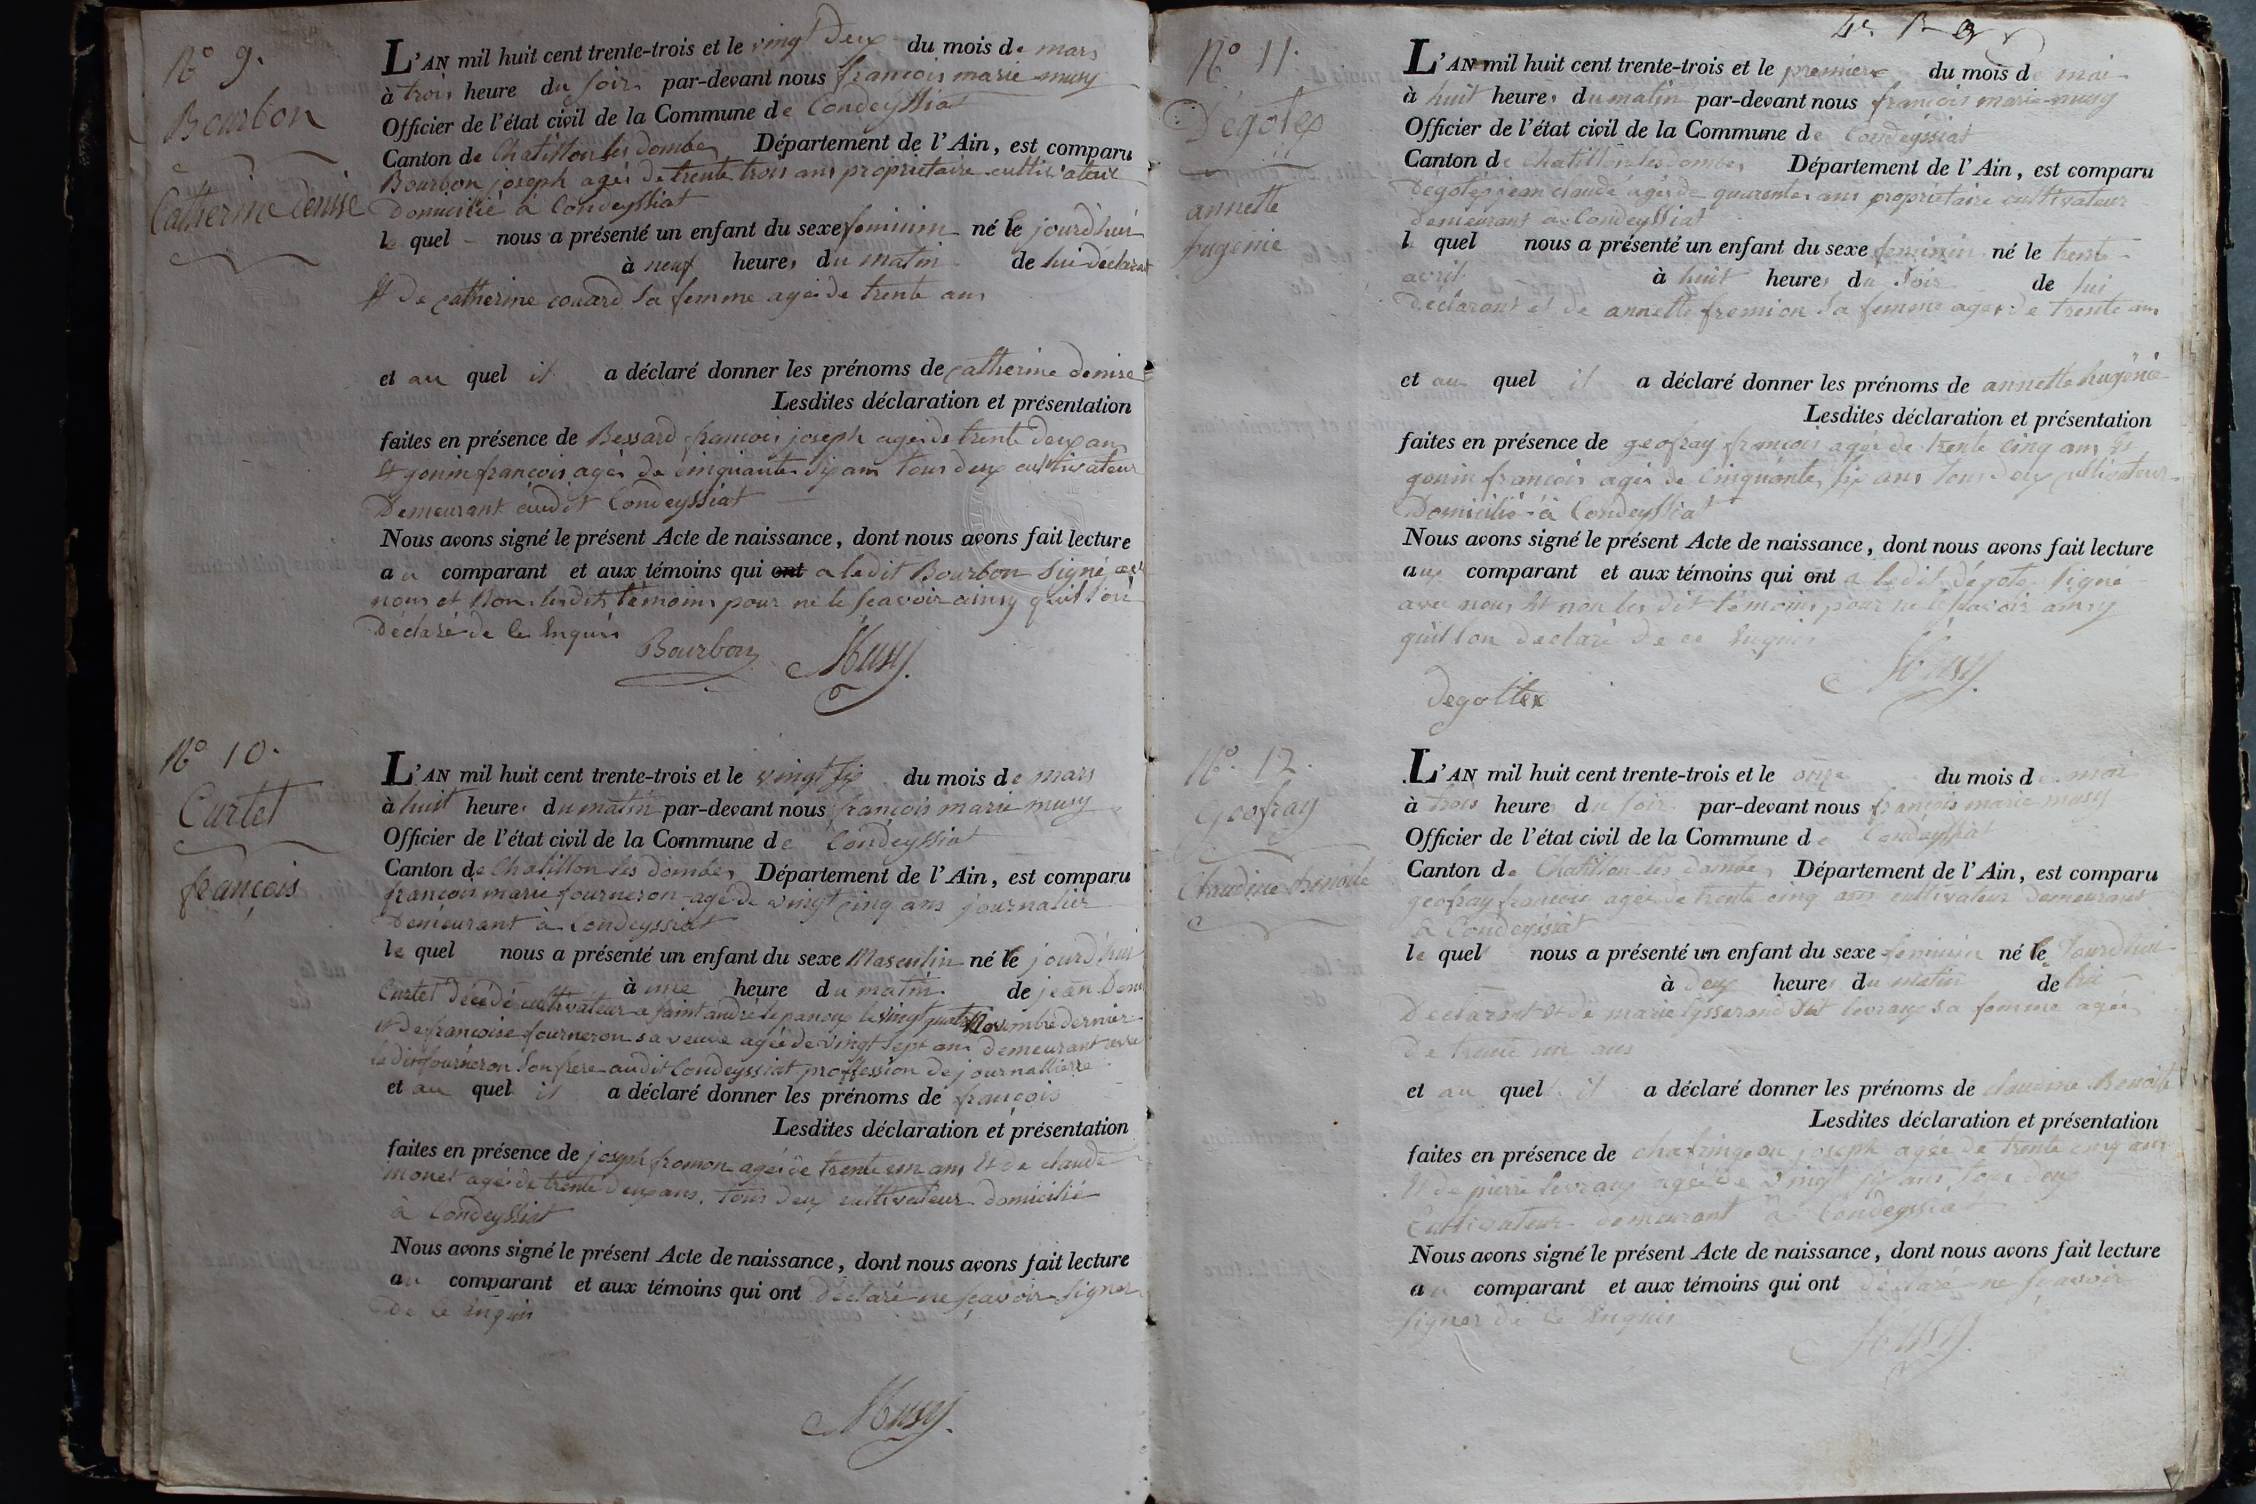 N° 9.
Bourbon
Catherine Denise
L'AN mil huit cent trente-trois et le vingt Deux du mois de mars
à trois heure du soir par-devant nous françois marie musy
Officier de l'état civil de la Commune de Condeyssiat
Canton de Chatillon les dombes Département de l'Ain, est comparu
Bourbon joseph agé de trente trois ans propriétaire cultivateur
Domicilié à Condeyssiat
le quel nous a présenté un enfant du sexe feminin né le jourd'hui
à neuf heures du matin de lui déclarant
Et De catherine couard sa femme agée de trente ans
et au quel il a déclaré donner les prénoms de catherine denise
Lesdites déclaration et présentation
faites en présence de Bessard françois joseph agé de trente deux ans
Et gonin françois agé de cinquante six ans tous deux cultivateur
Demeurant audit Condeyssiat
Nous avons signé le présent Acte de naissance, dont nous avons fait lecture
au comparant et aux témoins qui ont a ledit Bourbon signé avec
nous et Non lesdits témoins pour ne le scavoir ainsy quil l'on
Déclaré de ce Enquis
Bourbon Musy
N° 10.
Curtet
françois
L'AN mil huit cent trente-trois et le vingt six du mois de mars
à huit heures du matin par-devant nous françois marie musy
Officier de l'état civil de la Commune de Condeyssiat
Canton de Chatillon les dombes Département de l'Ain, est comparu
françois marie fourneron agé de vingt cinq ans journalier
Demeurant à Condeyssiat
le quel nous a présenté un enfant du sexe Masculin né le jourd'hui
à une heure du matin de jean Denis
Curtet décédé cultivateur a saint andré le panoux le vingt quatre Novembre dernier
et De françoise fourneron sa veuve agée de vingt sept ans demeurant avec
le dit fourneron son frere audit Condeyssiat proffession de journallierre
et au quel il a déclaré donner les prénoms de françois
Lesdites déclaration et présentation
faites en présence de joseph fromon agé de trente un ans Et de claude
monet agé de trente deux ans, tous deux cultivateur domicilié
à Condeyssiat
Nous avons signé le présent Acte de naissance, dont nous avons fait lecture
au comparant et aux témoins qui ont déclaré ne scavoir signer
De ce Enquis
Musy
N° 11.
Dégotex
annette
hugénie
L'AN mil huit cent trente-trois et le premier du mois de mai
à huit heures du matin par-devant nous françois marie musy
Officier de l'état civil de la Commune de Condeyssiat
Canton de Chatillon les dombes Département de l'Ain, est comparu
Dégotex jean claude agé de quarente ans propriétaire cultivateur
Demeurant à Condeyssiat
le quel nous a présenté un enfant du sexe feminin né le trente
avril à huit heures du soir de lui
Déclarant et de annette fremion sa femme agée de trente ans
et au quel il a déclaré donner les prénoms de annette hugénie
Lesdites déclaration et présentation
faites en présence de geofray françois agé de trente cinq ans Et
gonin françois agé de cinquante six ans tous deux cultivateur
Domicilié à Condeyssiat
Nous avons signé le présent Acte de naissance, dont nous avons fait lecture
aux comparant et aux témoins qui ont a ledit dégotex signé
avec nous Et non les dit témoins pour ne le scavoir ainsy
quil l'on déclaré De ce Enquis
Musy
Degottex
N° 12.
Geofray
Claudine Benoite
L'AN mil huit cent trente-trois et le onze du mois de mai
à trois heures du soir par-devant nous françois marie musy
Officier de l'état civil de la Commune de Condeyssiat
Canton de Chatillon les dombes Département de l'Ain, est comparu
geofray françois agé de trente cinq ans cultivateur demeurant
à Condeyssiat
le quel nous a présenté un enfant du sexe feminin né le jourd'hui
à deux heures du matin de lui
Déclarant Et de marie tysserand dit levraux sa femme agée
De trente un ans
et au quel il a déclaré donner les prénoms de claudine Benoite
Lesdites déclaration et présentation
faites en présence de chafringeon joseph agé de trente cinq ans
Et de pierre levraux agé de vingt six ans tous deux
Cultivateur demeurant à Condeyssiat
Nous avons signé le présent Acte de naissance, dont nous avons fait lecture
au comparant et aux témoins qui ont déclaré ne scavoir
signer de ce Enquis
Musy